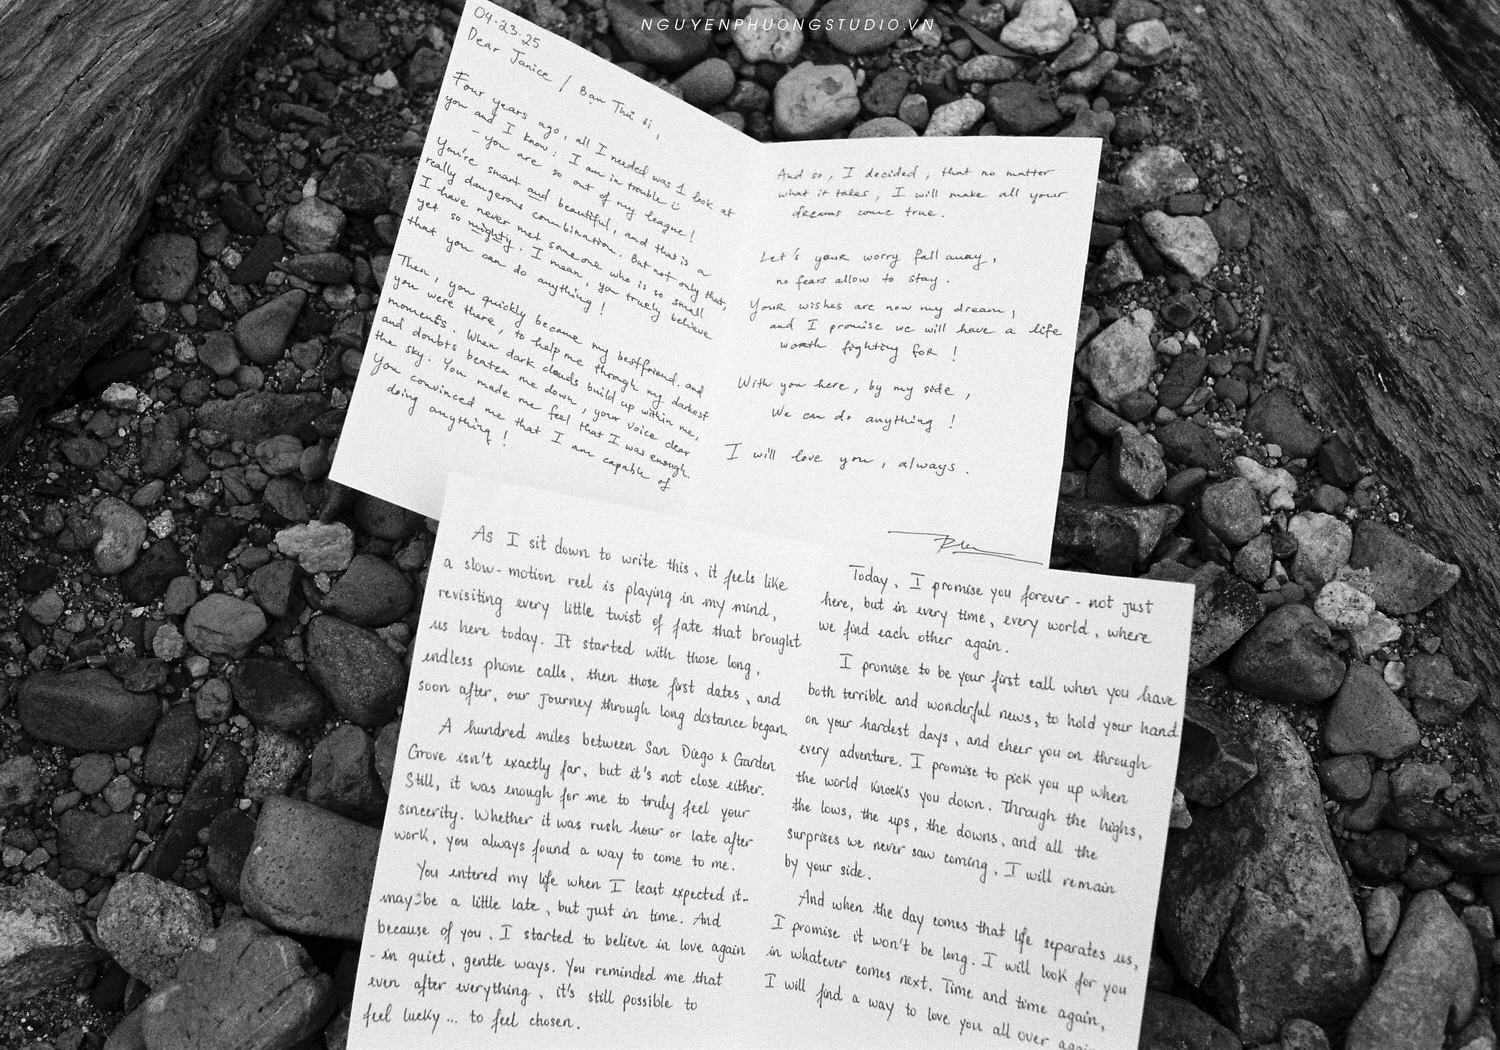 NGUYENPHUONGSTUDIO.VN
04.23.25
Dear Janice / Bạn Thú ơi,
Four years ago, all I needed was 1 look at
you and I know: I am in trouble
- you are so out of my league!
You're smart and beautiful, and that is a
really dangerous combination. But not only that,
I have never met someone who is so small
yet so mighty. I mean, you truely believe
that you can do anything!
Then, you quickly became my bestfriend. and
you were there, to help me through my darkest
moments. When dark clouds build up within me,
and doubts beaten me down, your voice clear
the sky. You made me feel that I was enough.
You convinced me that I am capable of
doing anything!
And so, I decided, that no matter
what it takes, I will make all your
dreams come true.
Let's your worry fall away,
no fears allow to stay.
Your wishes are now my dream,
and I promise we will have a life
worth fighting for!
With you here, by my side,
We can do anything!
I will love you, always.
As I sit down to write this, it feels like
a slow-motion reel is playing in my mind,
revisiting every little twist of fate that brought
us here today. It started with those long,
endless phone calls, then those first dates, and
soon after, our journey through long distance began.
A hundred miles between San Diego & Garden
Grove isn't exactly far, but it's not close either.
Still, it was enough for me to truly feel your
sincerity. Whether it was rush hour or late after
work, you always found a way to come to me.
You entered my life when I least expected it-
maybe a little late, but just in time. And
because of you, I started to believe in love again
- in quiet, gentle ways. You reminded me that
even after everything, it's still possible to
feel lucky... to feel chosen.
Today, I promise you forever - not just
here, but in every time, every world, where
we find each other again.
I promise to be your first call when you have
both terrible and wonderful news, to hold your hand
on your hardest days, and cheer you on through
every adventure. I promise to pick you up when
the world knocks you down. Through the highs,
the lows, the ups, the downs, and all the
surprises we never saw coming, I will remain
by your side.
And when the day comes that life separates us,
I promise it won't be long. I will look for you
in whatever comes next. Time and time again,
I will find a way to love you all over again